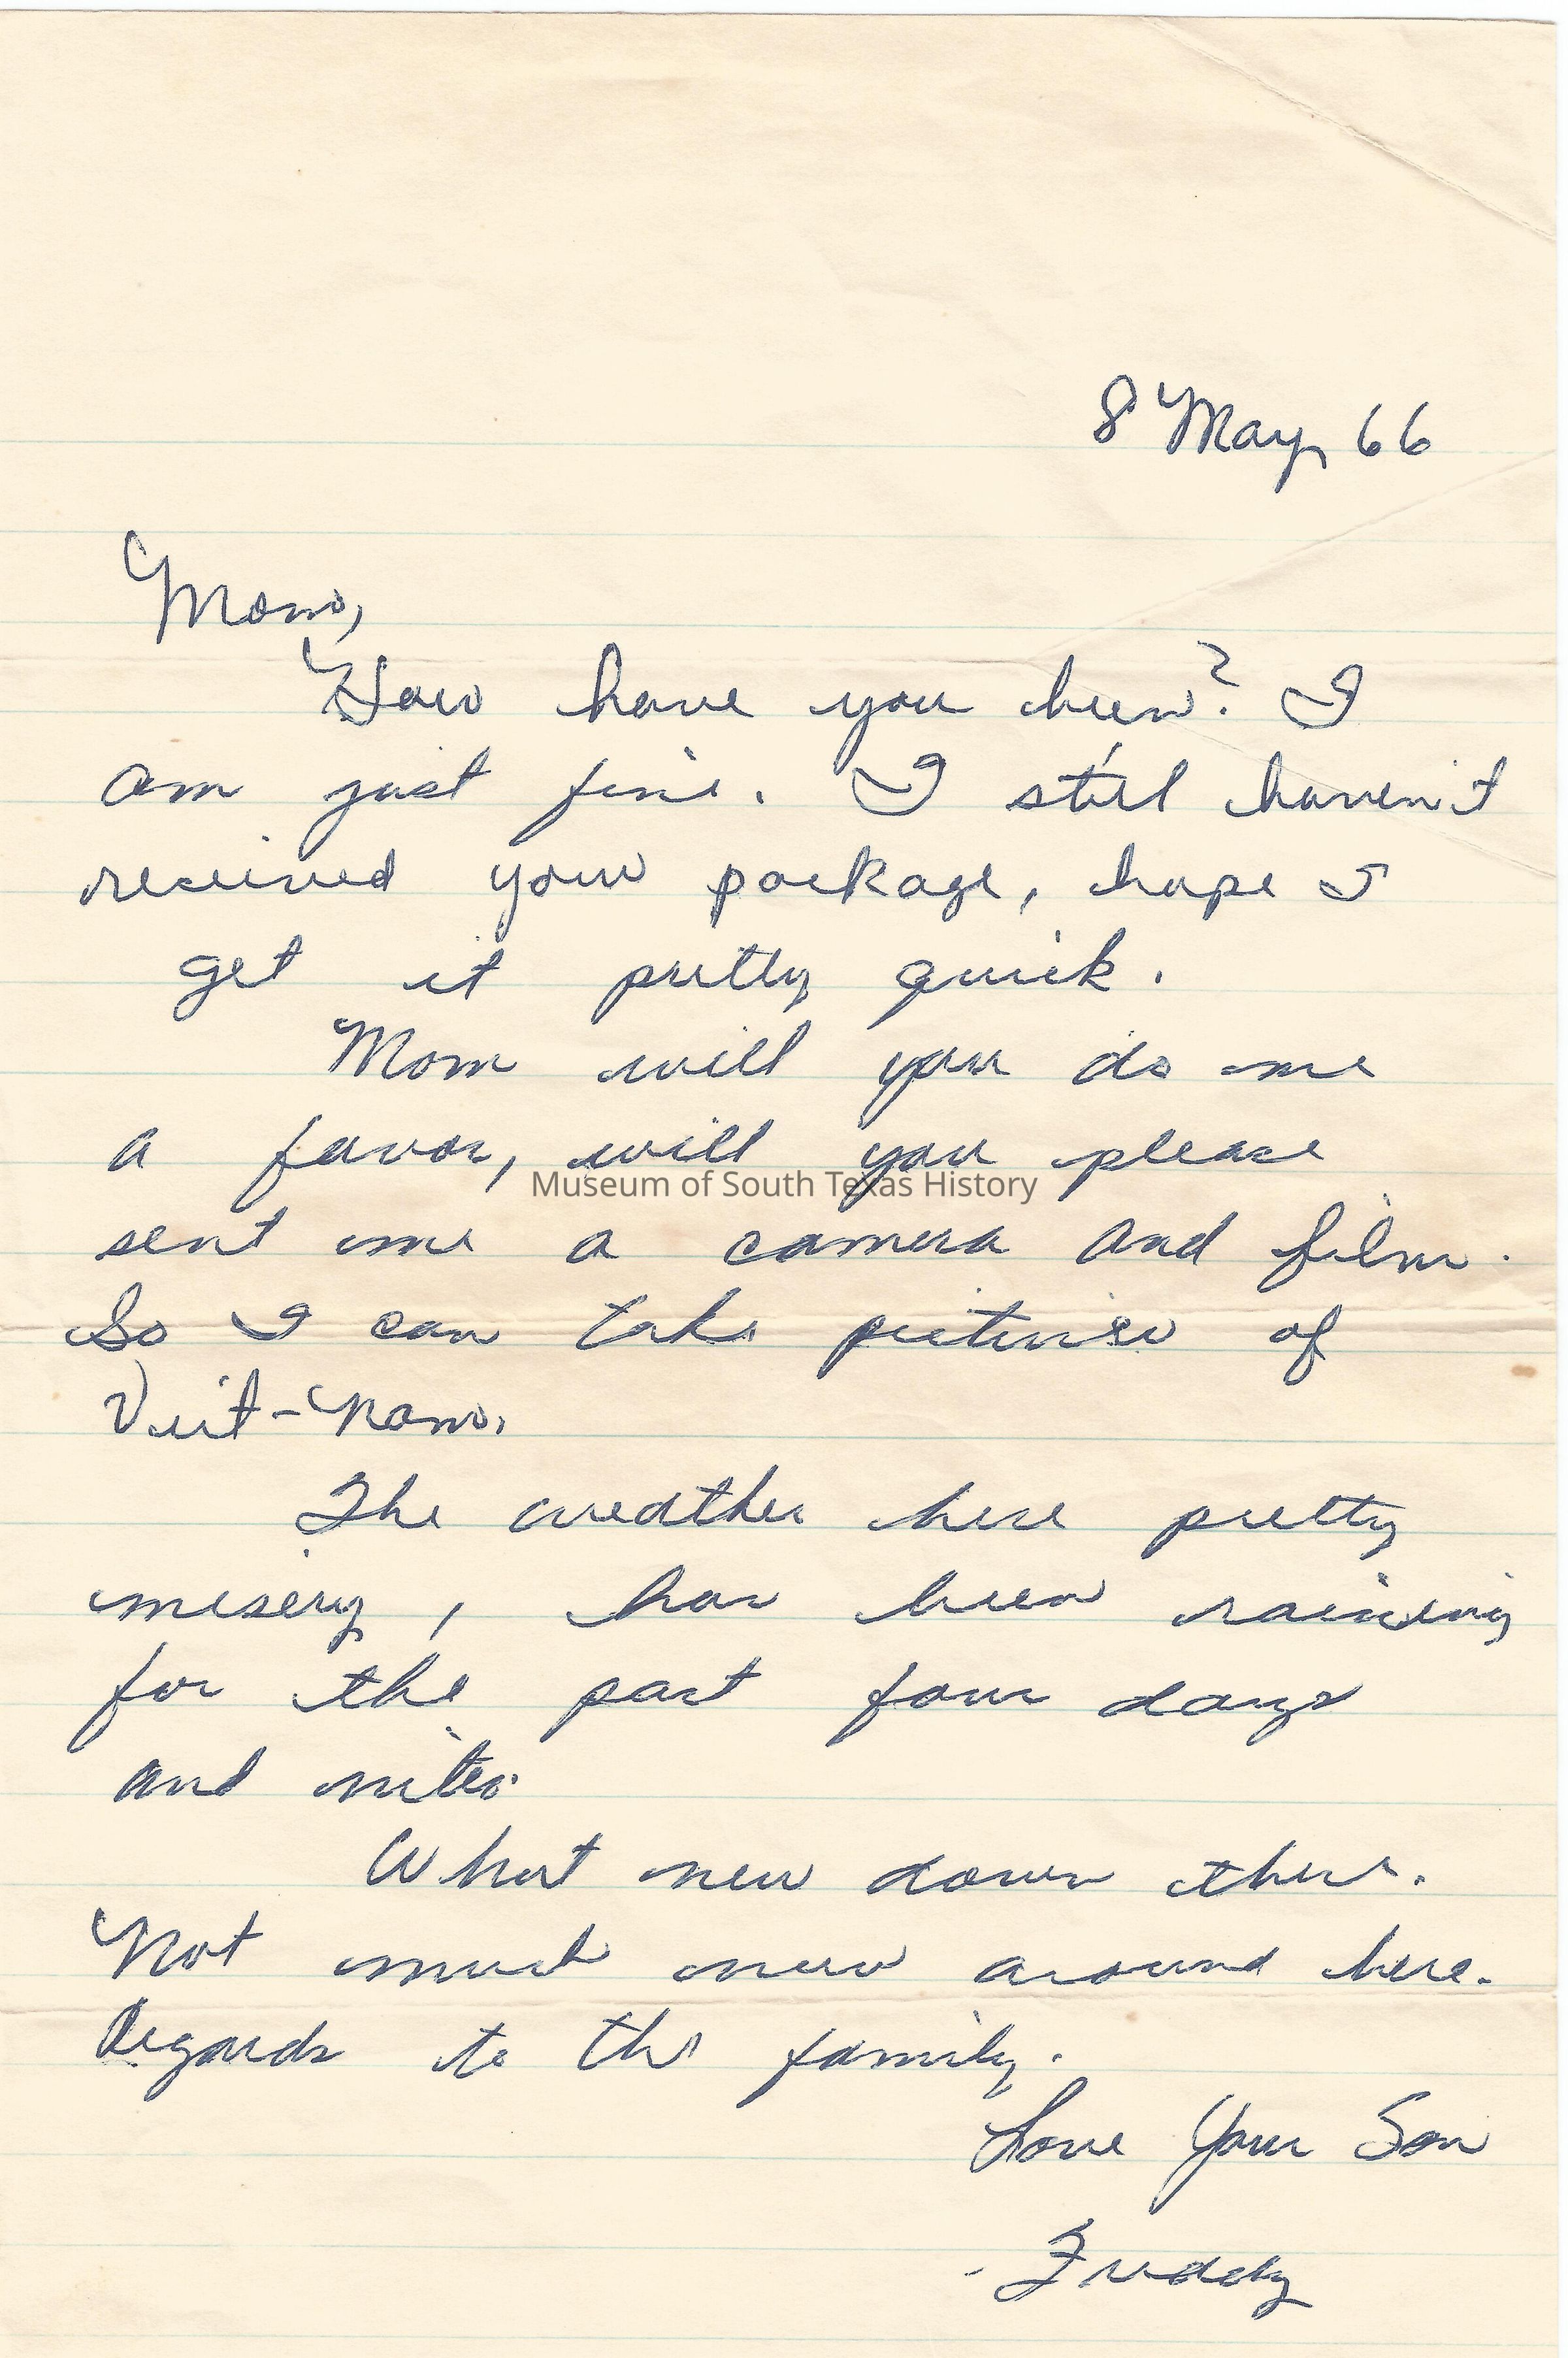 8 May, 66
Mom,
How have you been? I
am just fine. I still haven't
received your package, hope I
get it pretty quick.
Mom will you do me
a favor, will you please
Museum of South Texas History
sent me a camera and film.
So I can take pictures of
Viet-Nam.
The weather here pretty
misery, has been raining
for the past four days
and nites.
What new down there.
Not much new around here.
Regards to the family.
Love Your Son
Freddy